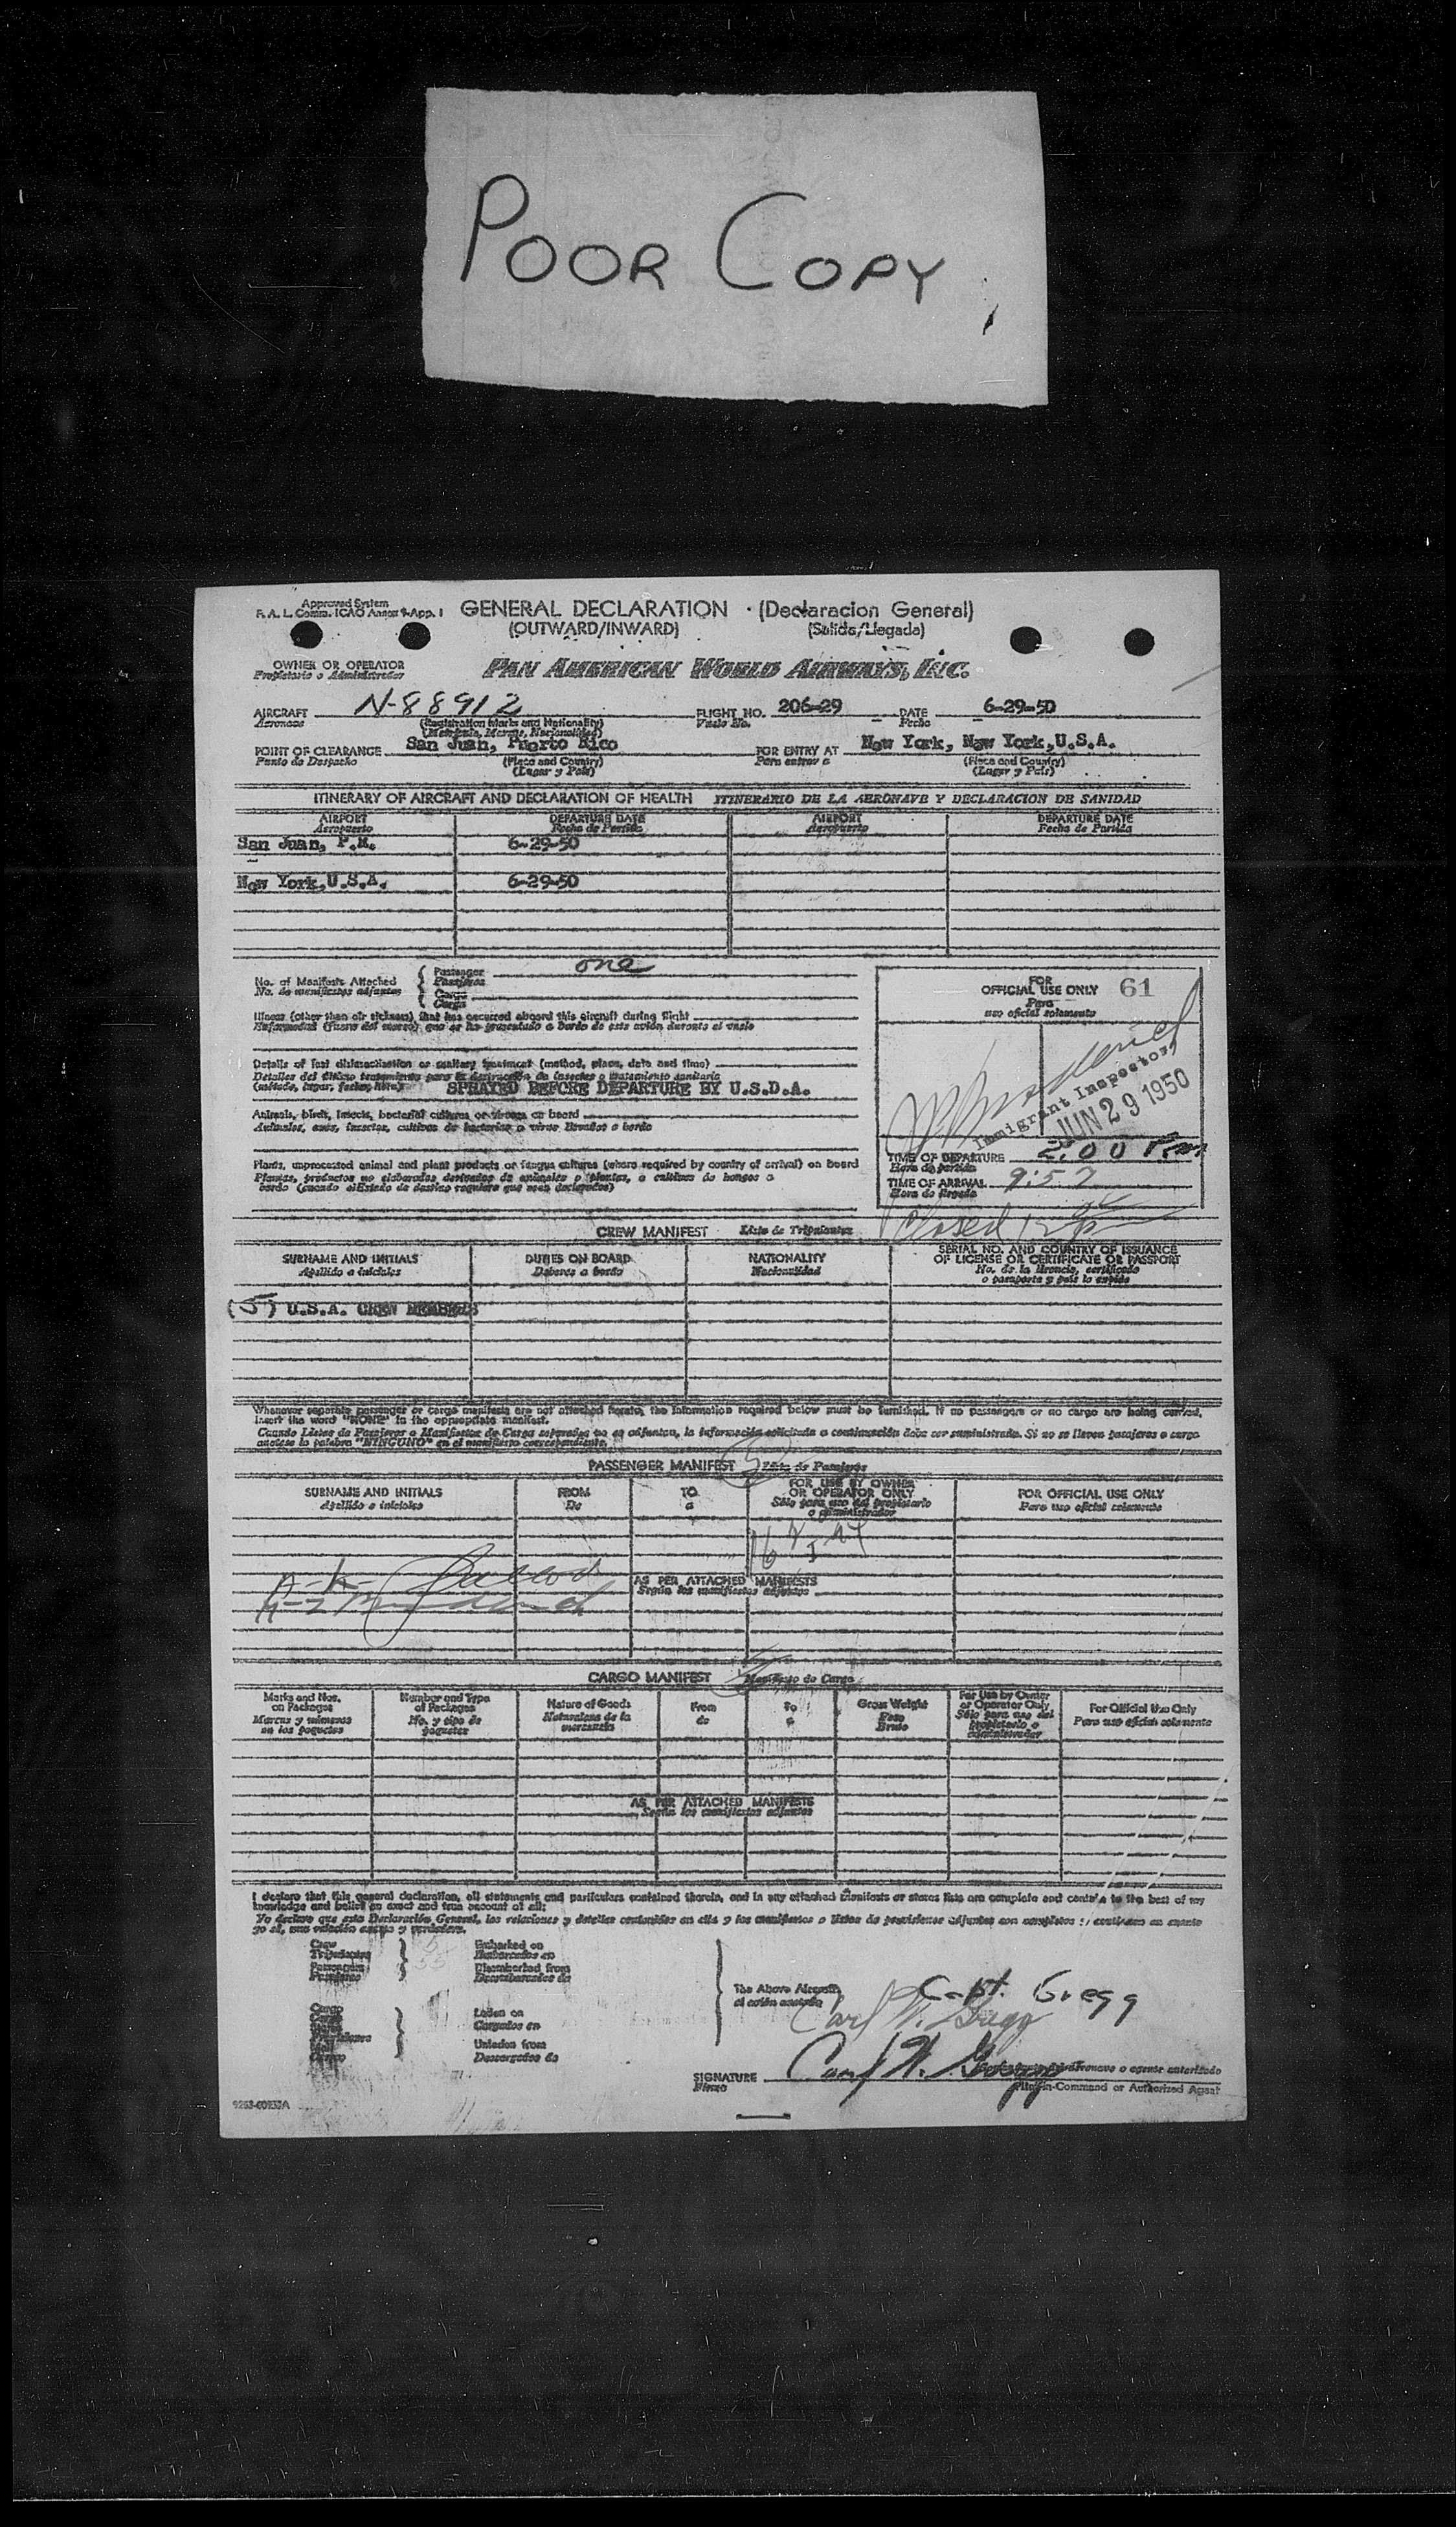 POOR COPY
Approved System
F. A. L. Comm. ICAO Annex 9-App. 1
GENERAL DECLARATION · (Declaracion General)
(OUTWARD/INWARD) (Salida/Llegada)
OWNER OR OPERATOR
Propietario o Administrador
PAN AMERICAN WORLD AIRWAYS, INC.
AIRCRAFT N-88912 FLIGHT NO. 206-29 DATE 6-29-50
Aeronave (Registration Marks and Nationality) Vuelo No. Fecha
(Matricula, Marcas, Nacionalidad)
POINT OF CLEARANCE San Juan, Puerto Rico FOR ENTRY AT New York, New York, U.S.A.
Punto de Despacho (Place and Country) Para entrar a (Place and Country)
(Lugar y País) (Lugar y País)
ITINERARY OF AIRCRAFT AND DECLARATION OF HEALTH ITINERARIO DE LA AERONAVE Y DECLARACION DE SANIDAD
AIRPORT DEPARTURE DATE AIRPORT DEPARTURE DATE
Aeropuerto Fecha de Partida Aeropuerto Fecha de Partida
San Juan, P.R. 6-29-50
New York, U.S.A. 6-29-50
No. of Manifests Attached Passenger one
No. de manifiestos adjuntos Pasajeros
Cargo
Carga
Illness (other than air sickness) that has occurred aboard this aircraft during flight
Enfermedad (fuera del mareo) que se ha presentado a bordo de este avión durante el vuelo
Details of last disinsectisation or sanitary treatment (method, place, date and time)
Detalles del último tratamiento para la destrucción de insectos o tratamiento sanitario
(método, lugar, fecha, hora) SPRAYED BEFORE DEPARTURE BY U.S.D.A.
Animals, birds, insects, bacterial cultures or viruses on board
Animales, aves, insectos, cultivos de bacterias o virus llevados a bordo
Plants, unprocessed animal and plant products or fungus cultures (where required by country of arrival) on board
Plantas, productos no elaborados derivados de animales o plantas, o cultivos de hongos a
bordo (cuando el Estado de destino requiere que sean declarados)
FOR
OFFICIAL USE ONLY 61
Para
uso oficial solamente
Immigrant Inspector
JUN 29 1950
TIME OF DEPARTURE 2:00 P.m
Hora de partida
TIME OF ARRIVAL 9:57
Hora de llegada
Closed
CREW MANIFEST Lista de Tripulantes
SURNAME AND INITIALS DUTIES ON BOARD NATIONALITY SERIAL NO. AND COUNTRY OF ISSUANCE
OF LICENSE OR CERTIFICATE OR PASSPORT
Apellido e iniciales Deberes a bordo Nacionalidad No. de la licencia, certificado
o pasaporte y país lo expide
(5) U.S.A. CREW MEMBERS
Whenever separate passenger or cargo manifests are not attached hereto, the information required below must be furnished. If no passengers or no cargo are being carried,
insert the word "NONE" in the appropriate manifest.
Cuando Listas de Pasajeros o Manifiestos de Carga separados no se adjuntan, la información solicitada a continuación debe ser suministrada. Si no se llevan pasajeros o carga
anótese la palabra "NINGUNO" en el manifiesto correspondiente.
PASSENGER MANIFEST Lista de Pasajeros
SURNAME AND INITIALS FROM TO FOR USE BY OWNER
OR OPERATOR ONLY FOR OFFICIAL USE ONLY
Apellido e iniciales De a Sólo para uso del propietario
o administrador Para uso oficial solamente
AS PER ATTACHED MANIFESTS
Según los manifiestos adjuntos
CARGO MANIFEST Manifiesto de Carga
Marks and Nos.
on Packages
Marcas y números
en los paquetes
Number and Type
of Packages
No. y tipo de
paquetes
Nature of Goods
Naturaleza de la
mercancía
From
de
To
a
Gross Weight
Peso
Bruto
For Use by Owner
or Operator Only
Sólo para uso del
propietario o
administrador
For Official Use Only
Para uso oficial solamente
AS PER ATTACHED MANIFESTS
Según los manifiestos adjuntos
I declare that this general declaration, all statements and particulars contained therein, and in any attached manifests or stores lists are complete and contain to the best of my
knowledge and belief an exact and true account of all:
Yo declaro que esta Declaración General, las relaciones y detalles contenidos en ella y los manifiestos o listas de provisiones adjuntos son completos y contienen en cuanto
yo sé, una relación exacta y verdadera.
Crew
Tripulación
Passengers
Pasajeros
Embarked on
Embarcados en
Disembarked from
Desembarcados de
Cargo
Carga
Stores
Provisiones
Mail
Correo
Laden on
Cargados en
Unladen from
Descargados de
The Above Aircraft
el avión anotado
Capt. Gregg
Carl W. Gregg
SIGNATURE Carl W. Gregg
Firma
aeronave o agente autorizado
Pilot-in-Command or Authorized Agent